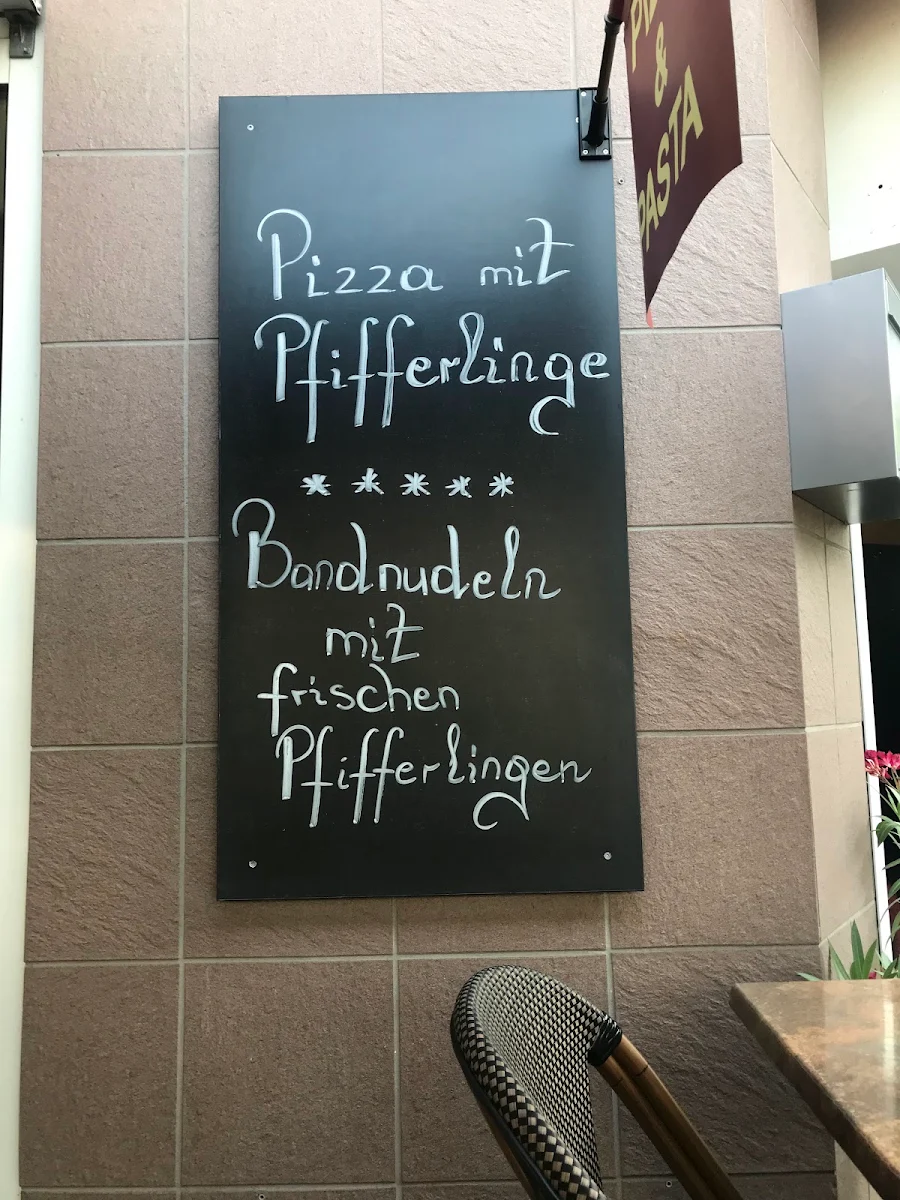 Pizza mit
Pfifferlinge
*****
Bandnudeln
mit
frischen
Pfifferlingen
&
PASTA